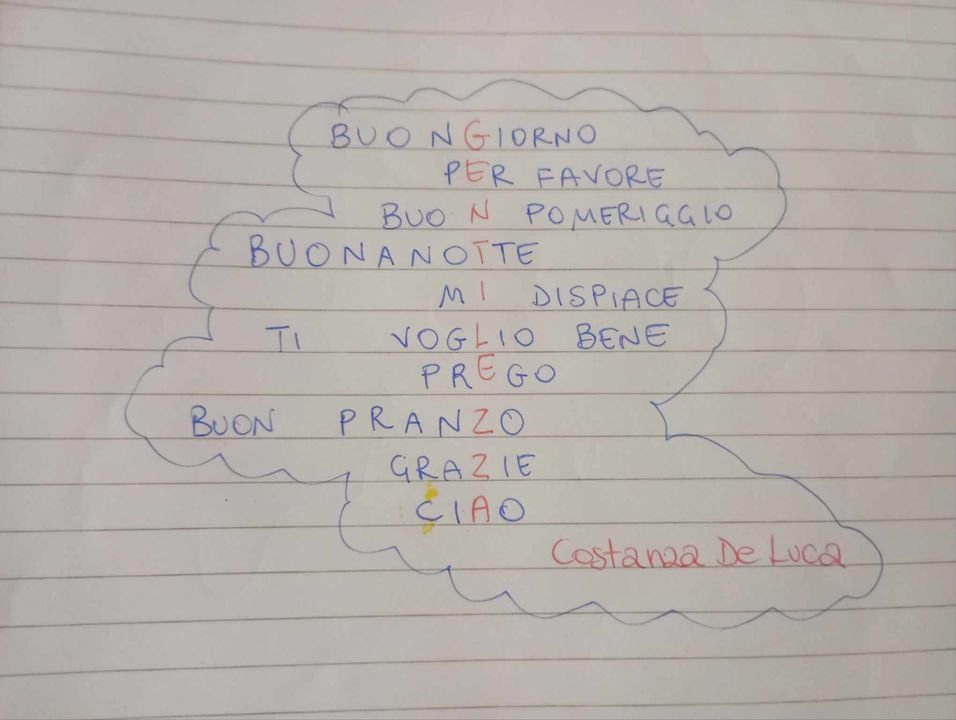 BUONGIORNO
PER FAVORE
BUON POMERIGGIO
BUONANOTTE
MI DISPIACE
TI VOGLIO BENE
PREGO
BUON PRANZO
GRAZIE
CIAO
Costanza De Luca